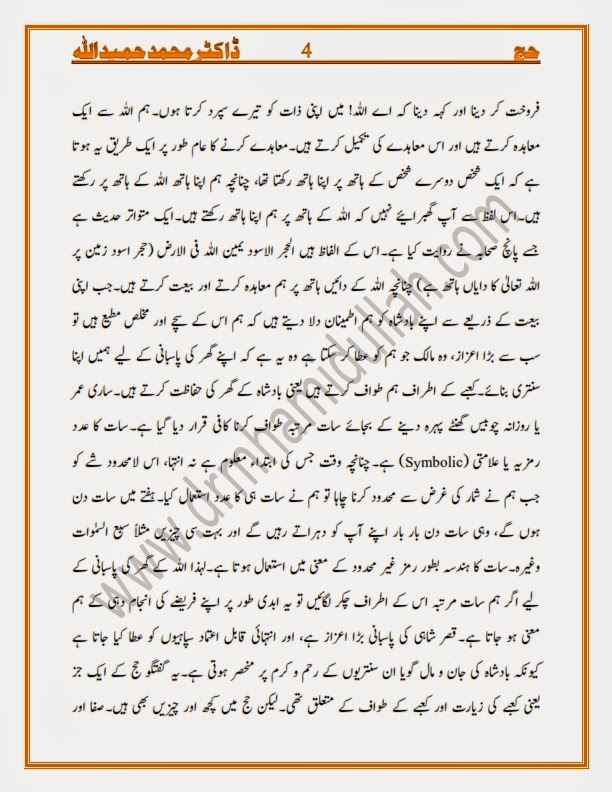 حج 4 ڈاکٹر محمد حمید اللہ
فروخت کر دینا اور کہہ دینا کہ اے اللہ! میں اپنی ذات کو تیرے سپرد کرتا ہوں۔ہم اللہ سے ایک
معاہدہ کرتے ہیں اور اس معاہدے کی تکمیل کرتے ہیں۔معاہدے کرنے کا عام طور پر ایک طریق یہ ہوتا
ہے کہ ایک شخص دوسرے شخص کے ہاتھ پر اپنا ہاتھ رکھتا تھا، چنانچہ ہم اپنا ہاتھ اللہ کے ہاتھ پر رکھتے
ہیں۔اس لفظ سے آپ گھبرائیے نہیں کہ اللہ کے ہاتھ پر ہم اپنا ہاتھ رکھتے ہیں۔ایک متواتر حدیث ہے
جسے پانچ صحابہ نے روایت کیا ہے۔اس کے الفاظ ہیں الحجر الاسود یمین اللہ فی الارض (حجر اسود زمین پر
اللہ تعالیٰ کا دایاں ہاتھ ہے) چنانچہ اللہ کے دائیں ہاتھ پر ہم معاہدہ کرتے اور بیعت کرتے ہیں۔جب اپنی
بیعت کے ذریعے سے اپنے بادشاہ کو ہم اطمینان دلا دیتے ہیں کہ ہم اس کے سچے اور مخلص مطیع ہیں تو
سب سے بڑا اعزاز، وہ مالک جو ہم کو عطا کر سکتا ہے وہ یہ ہے کہ اپنے گھر کی پاسبانی کے لیے ہمیں اپنا
سنتری بنائے۔کعبے کے اطراف ہم طواف کرتے ہیں یعنی بادشاہ کے گھر کی حفاظت کرتے ہیں۔ساری عمر
یا روزانہ چوبیس گھنٹے پہرہ دینے کے بجائے سات مرتبہ طواف کرنا کافی قرار دیا گیا ہے۔سات کا عدد
رمزیہ یا علامتی (Symbolic) ہے۔چنانچہ وقت جس کی ابتداء معلوم ہے نہ انتہا، اس لامحدود شے کو
جب ہم نے شمار کی غرض سے محدود کرنا چاہا تو ہم نے سات ہی کا عدد استعمال کیا۔ہفتے میں سات دن
ہوں گے، وہی سات دن بار بار اپنے آپ کو دہراتے رہیں گے اور بہت سی چیزیں مثلاً سبع السمٰوات
وغیرہ۔سات کا ہندسہ بطور رمز غیر محدود کے معنی میں استعمال ہوتا ہے۔لہٰذا اللہ کے گھر کی پاسبانی کے
لیے اگر ہم سات مرتبہ اس کے اطراف چکر لگائیں تو یہ ابدی طور پر اپنے فریضے کی انجام دہی کے ہم
معنی ہو جاتا ہے۔قصر شاہی کی پاسبانی بڑا اعزاز ہے، اور انتہائی قابل اعتماد سپاہیوں کو عطا کیا جاتا ہے
کیونکہ بادشاہ کی جان و مال گویا ان سنتریوں کے رحم و کرم پر منحصر ہوتی ہے۔یہ گفتگو حج کے ایک جز
یعنی کعبے کی زیارت اور کعبے کے طواف کے متعلق تھی۔لیکن حج میں کچھ اور چیزیں بھی ہیں۔صفا اور
www.drmhamidullah.com